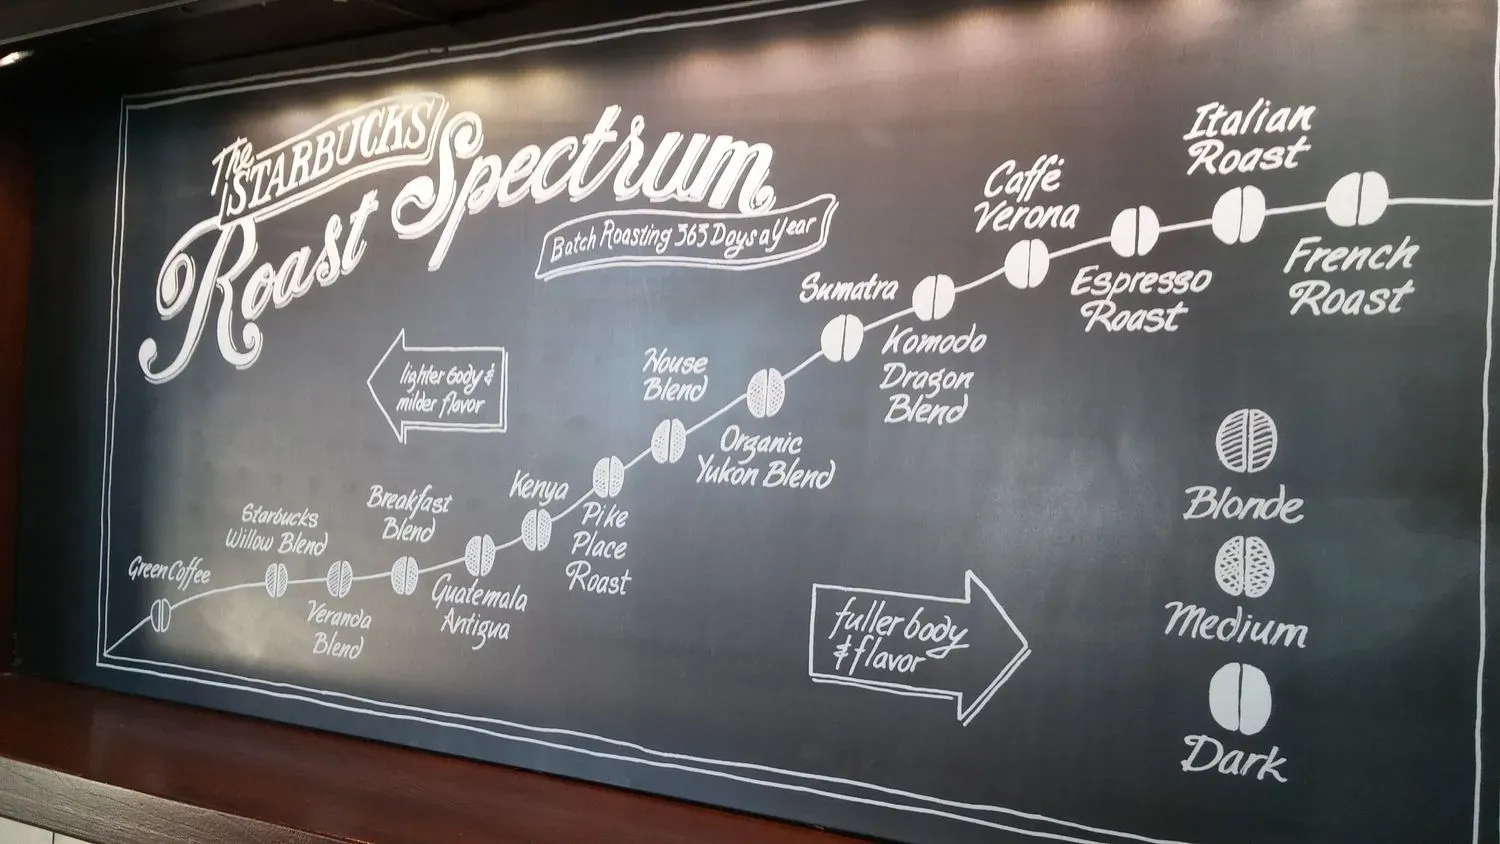 The
STARBUCKS
Roast Spectrum
Batch Roasting 365 Days a Year
lighter body &
milder flavor
Green Coffee
Starbucks
Willow Blend
Veranda
Blend
Breakfast
Blend
Guatemala
Antigua
Kenya
Pike
Place
Roast
House
Blend
Organic
Yukon Blend
Sumatra
Komodo
Dragon
Blend
Caffé
Verona
Espresso
Roast
Italian
Roast
French
Roast
fuller body
& flavor
Blonde
Medium
Dark